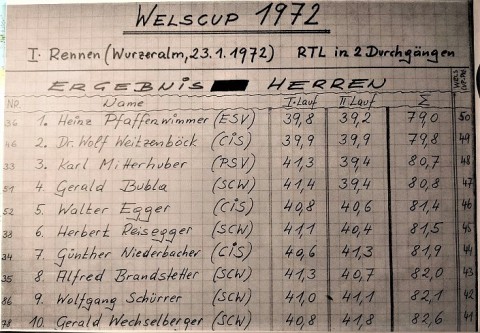 WELSCUP 1972
I. Rennen (Wurzeralm, 23.1.1972) RTL in 2 Durchgängen
ERGEBNIS HERREN
NR. Name I. Lauf II. Lauf Σ
36 1. Heinz Pfaffenwimmer (ESV) 39,8 39,2 79,0 50
46 2. Dr. Wolf Weitzenböck (CiS) 39,9 39,9 79,8 49
33 3. Karl Mitterhuber (PSV) 41,3 39,4 80,7 48
51 4. Gerald Bubla (SCW) 41,4 39,4 80,8 47
52 5. Walter Egger (CiS) 40,8 40,6 81,4 46
38 6. Herbert Reisegger (SCW) 41,1 40,4 81,5 45
34 7. Günther Niederbacher (CiS) 40,6 41,3 81,9 44
35 8. Alfred Brandstetter (SCW) 41,3 40,7 82,0 43
86 9. Wolfgang Schürrer (SCW) 41,0 41,1 82,1 42
78 10. Gerald Wechselberger (SCW) 40,8 41,8 82,6 41